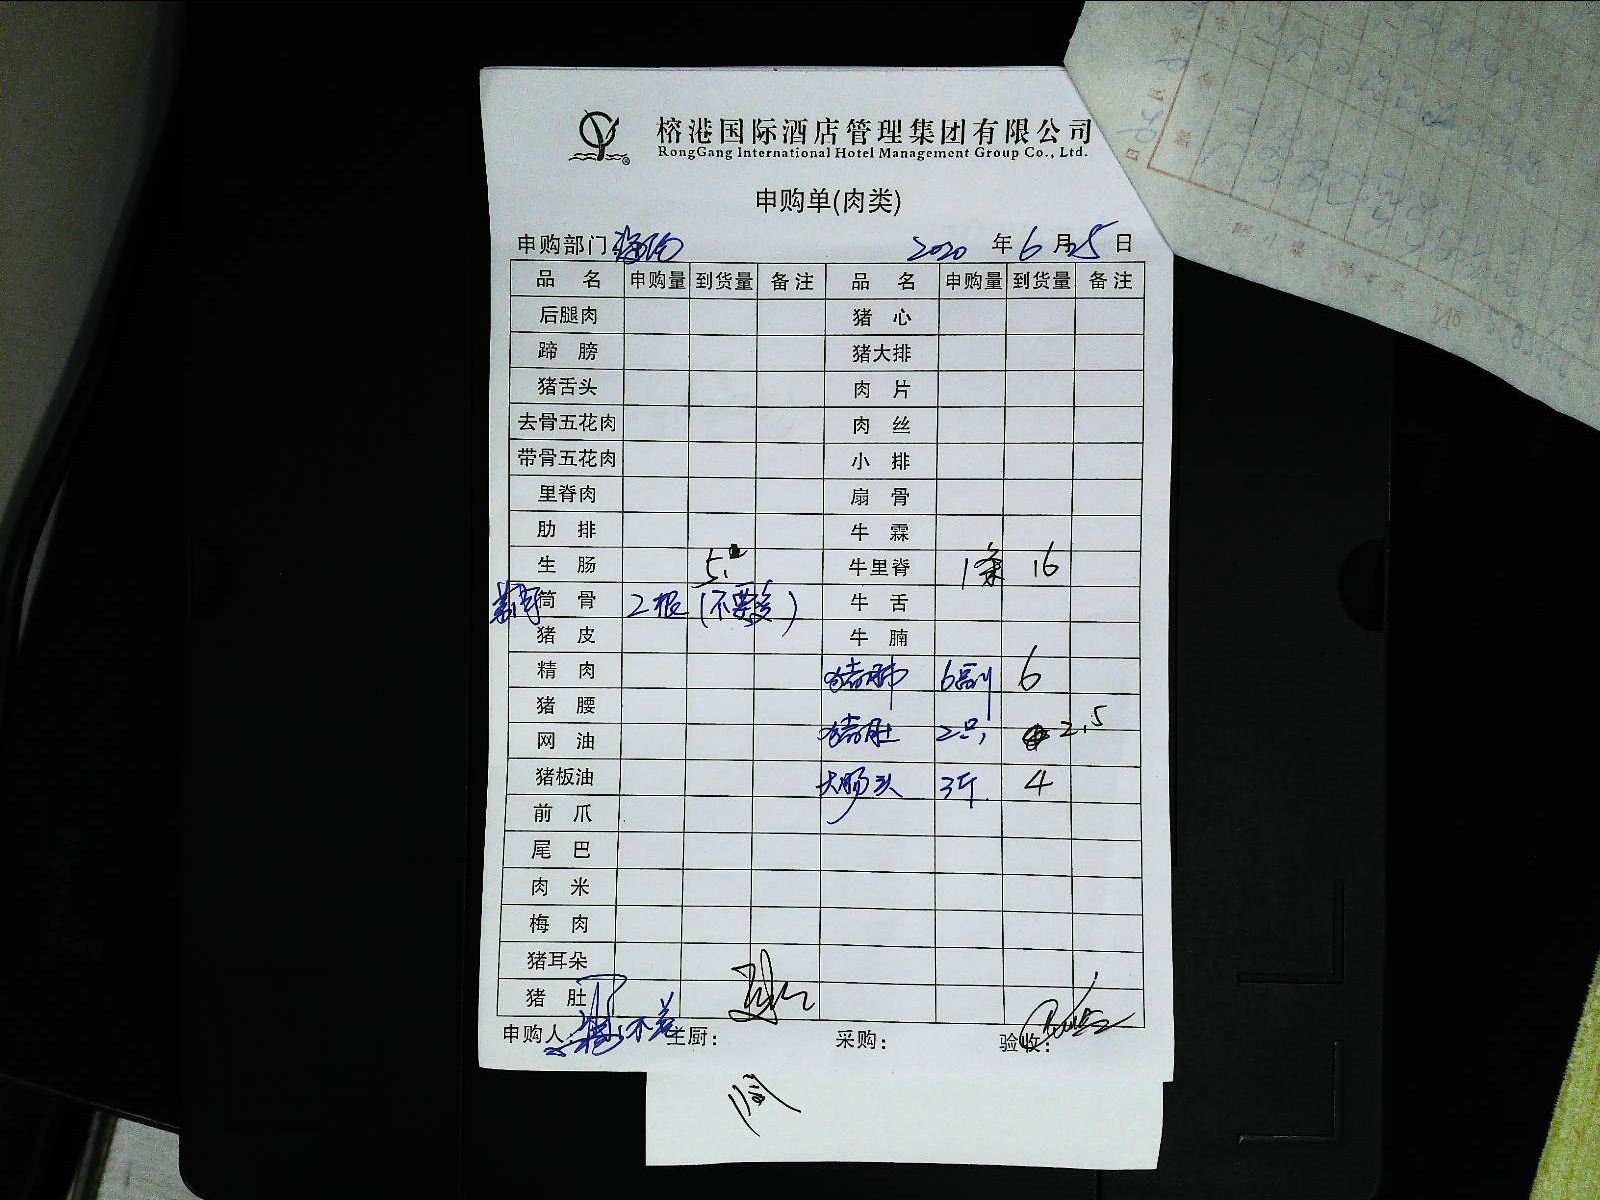 榕港国际酒店管理集团有限公司
RongGang International Hotel Management Group Co., Ltd.
申购单(肉类)
申购部门 2020 年 6 月 25 日
品 名 申购量 到货量 备注 品 名 申购量 到货量 备注
后腿肉 猪 心
蹄 膀 猪大排
猪舌头 肉 片
去骨五花肉 肉 丝
带骨五花肉 小 排
里脊肉 扇 骨
肋 排 牛 霖
生 肠 牛里脊 1条 16
筒 骨 2根 (不要多) 牛 舌
猪 皮 牛 腩
精 肉 猪肺 6副 6
猪 腰 猪肚 2只 2.5
网 油
猪板油 大肠头 3斤 4
前 爪
尾 巴
肉 米
梅 肉
猪耳朵
猪 肚
申购人: 主厨: 采购: 验收: